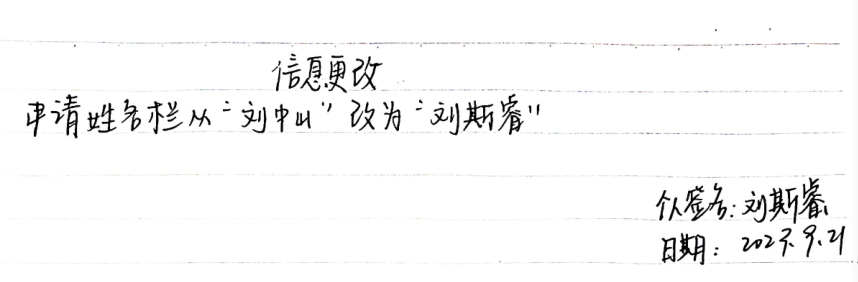 信息更改
申请姓名栏从“刘中山”改为“刘斯睿”
个人签名:刘斯睿
日期:2023.9.21